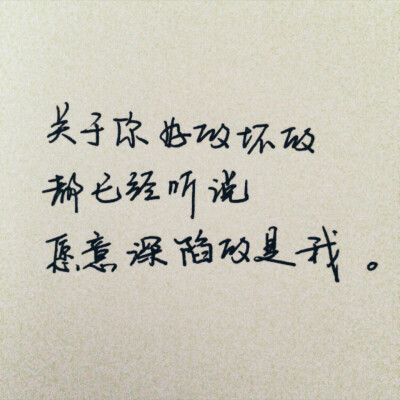 关于你好的坏的
都已经听说
愿意深陷的是我。